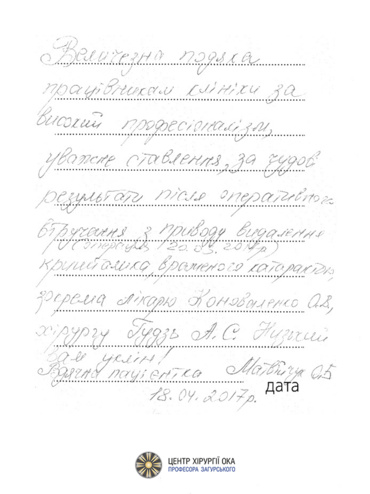 Величезна подяка
працівникам клініки за
високий професіоналізм,
уважне ставлення, за чудові
результати після оперативного
втручання з приводу видалення
(операція 20.03.2017р)
кришталика враженого катарактою,
зокрема лікарю Коноваленко О.В,
хірургу Будзь А.С. Низький
Вам уклін!
Вдячна пацієнтка
дата
18.04.2017р.
ЦЕНТР ХІРУРГІЇ ОКА
ПРОФЕСОРА ЗАГУРСЬКОГО